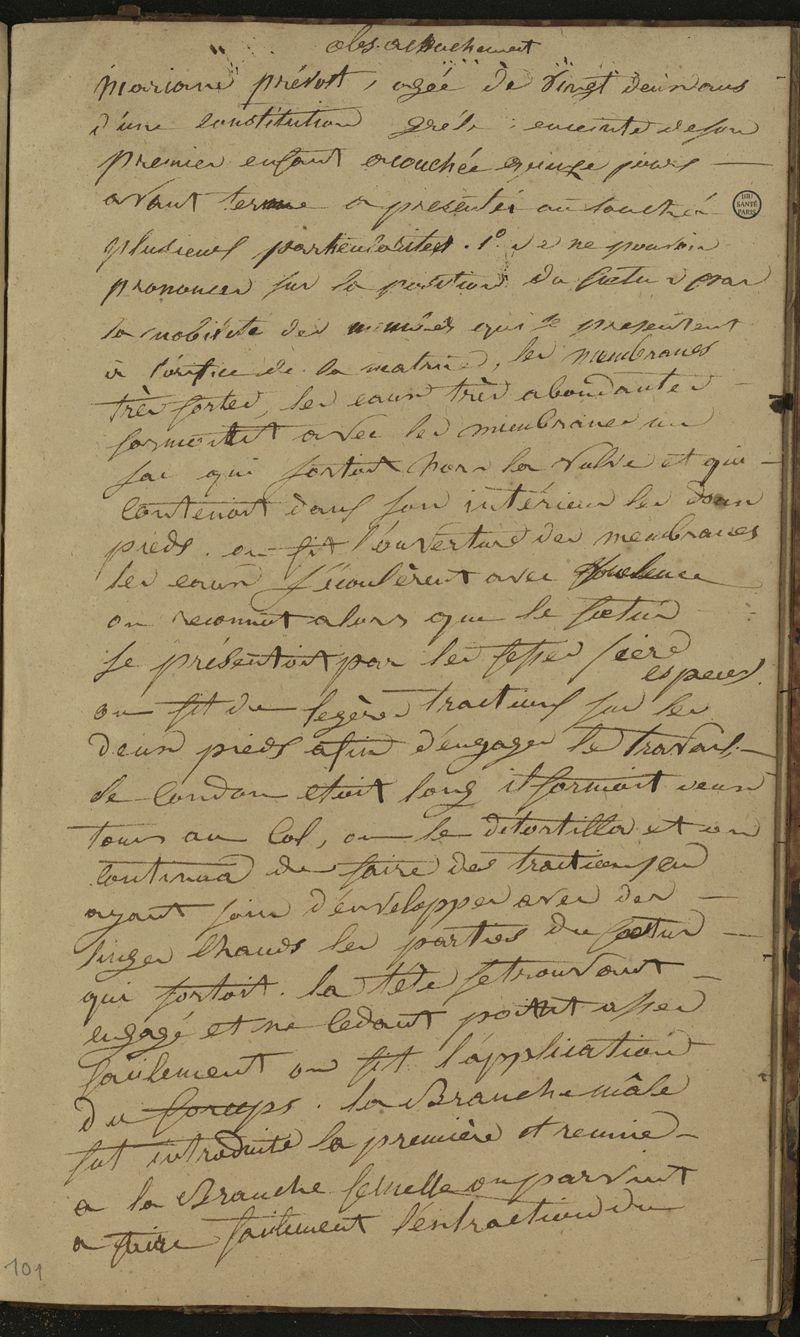 obs. accouchement
mariane prévost, agée de vingt deux ans
d'une constitution grêle enceinte de son
premier enfant accouchée quinze jours
avant terme a présenté au touché
plusieurs particularités. 1º de ne pouvoir
prononcer sur la position du fœtus par
la mobilité des membres qui se présentent
à l'orifice de la matrice, les membranes
très fortes, les eaux très abondantes
formoit avec les membranes un
sac qui sortoit hors la vulve et qui
contenoit dans son intérieur les deux
pieds. on fit l'ouverture des membranes
les eaux s'écoulèrent avec
on reconnut alors que le fœtus
se présentoit par les fesses
on fit de legères tractions sur les
deux pieds afin d'engager le travail
le cordon etoit long il formoit deux
tours au col, on le détortilla et on
continua de faire des tractions en
ayant soin d'envelopper avec des
linges chauds les parties du fœtus
qui sortoit. la tête se trouvant
engagé et ne cedant point assez
facilement on fit l'application
du forceps. la Branche mâle
fut introduite la première et reunie
a la Branche femelle on parvint
a faire facilement l'extraction du
101
BIU
SANTÉ
PARIS